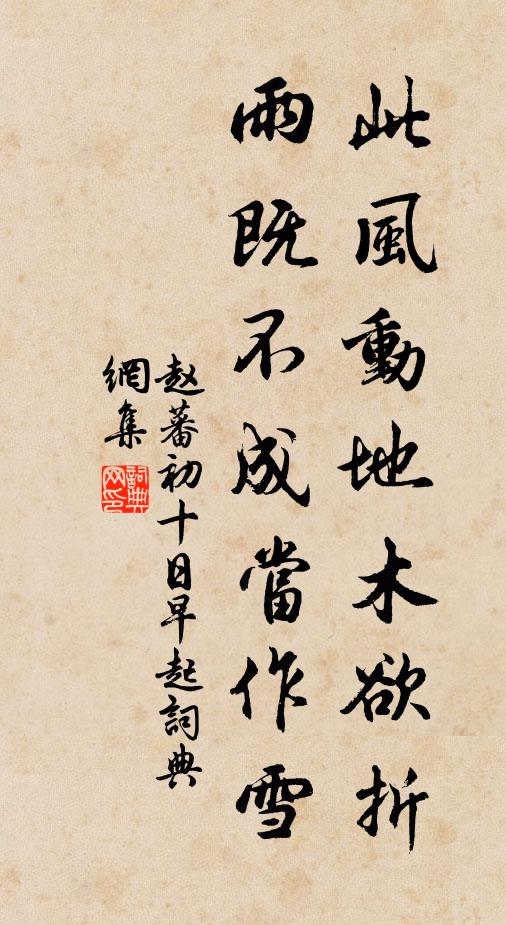 此風動地木欲折
雨既不成當作雪
赵蕃初十日早起詞典
網集
詞典
网印